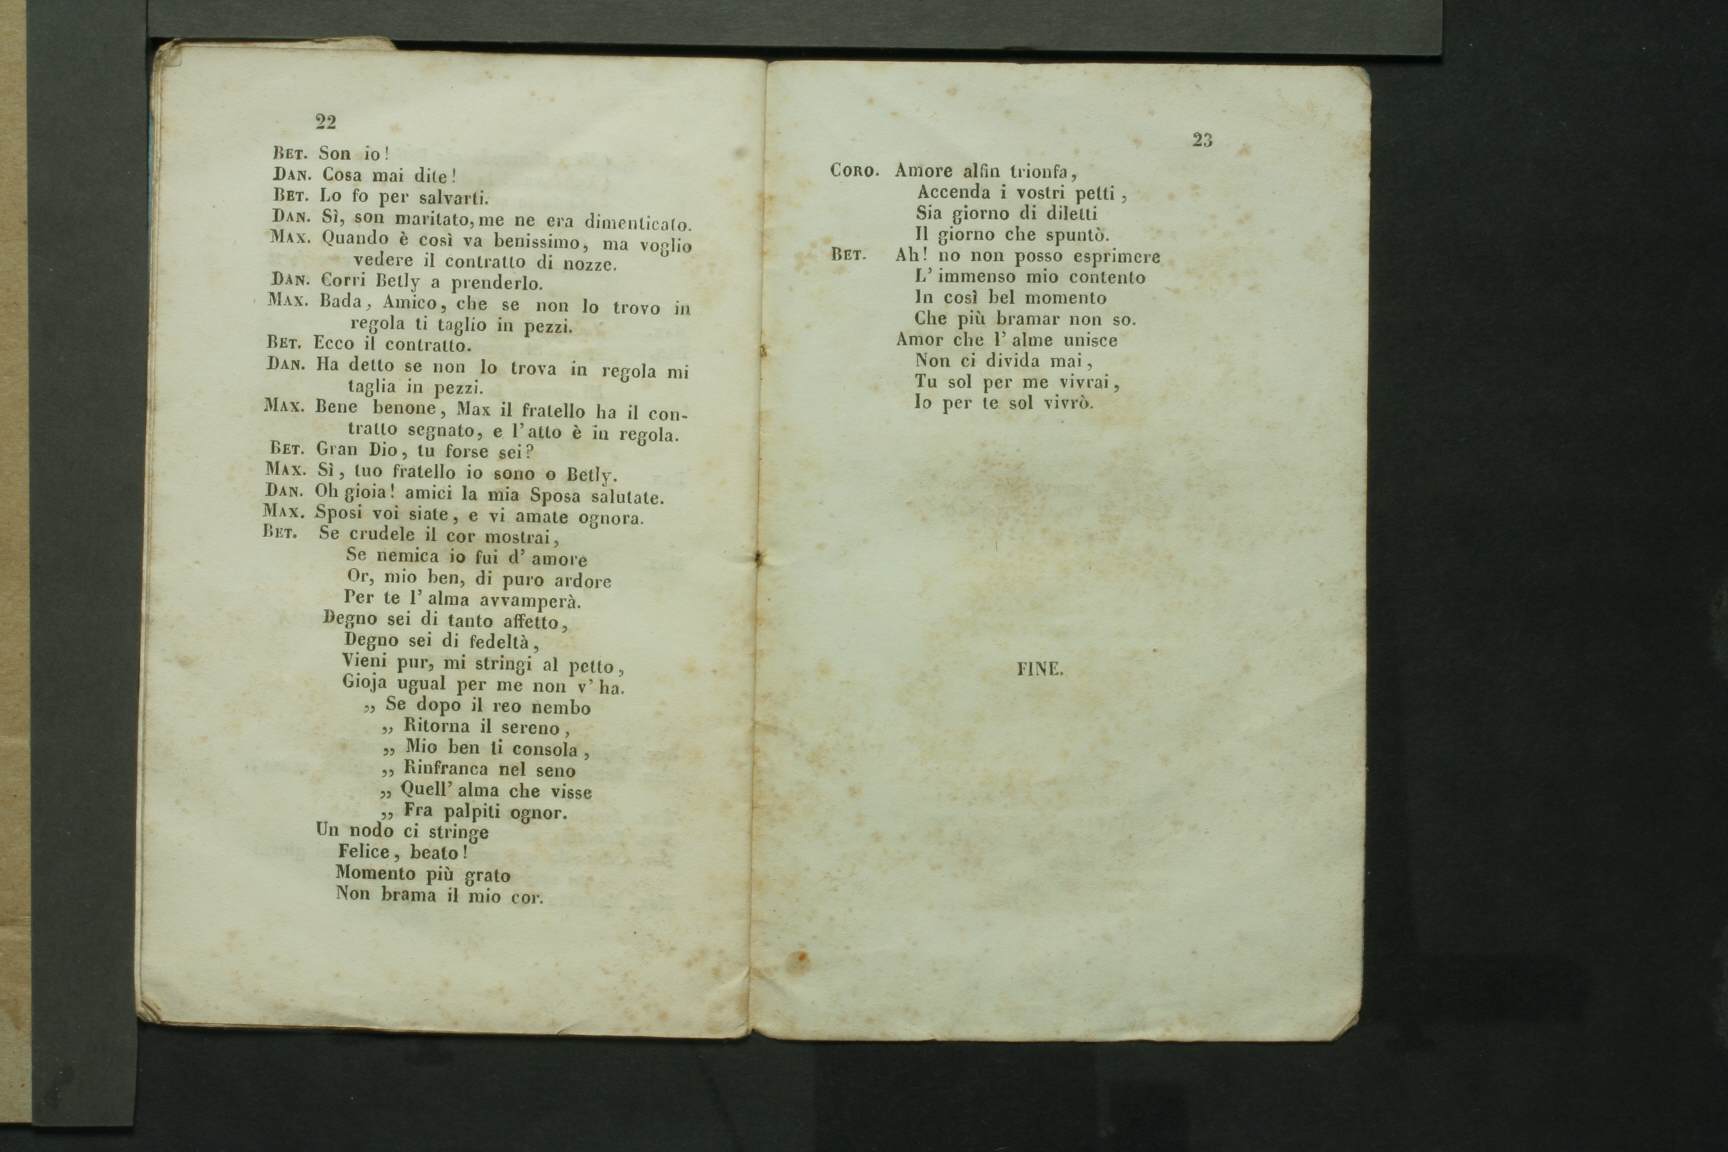 22
BET. Son io!
DAN. Cosa mai dite!
BET. Lo fo per salvarti.
DAN. Sì, son maritato, me ne era dimenticato.
MAX. Quando è così va benissimo, ma voglio
vedere il contratto di nozze.
DAN. Corri Betly a prenderlo.
MAX. Bada, Amico, che se non lo trovo in
regola ti taglio in pezzi.
BET. Ecco il contratto.
DAN. Ha detto se non lo trova in regola mi
taglia in pezzi.
MAX. Bene benone, Max il fratello ha il con-
tratto segnato, e l'atto è in regola.
BET. Gran Dio, tu forse sei?
MAX. Sì, tuo fratello io sono o Betly.
DAN. Oh gioia! amici la mia Sposa salutate.
MAX. Sposi voi siate, e vi amate ognora.
BET. Se crudele il cor mostrai,
Se nemica io fui d' amore
Or, mio ben, di puro ardore
Per te l' alma avvamperà.
Degno sei di tanto affetto,
Degno sei di fedeltà,
Vieni pur, mi stringi al petto,
Gioja ugual per me non v' ha.
„ Se dopo il reo nembo
„ Ritorna il sereno,
„ Mio ben ti consola,
„ Rinfranca nel seno
„ Quell' alma che visse
„ Fra palpiti ognor.
Un nodo ci stringe
Felice, beato!
Momento più grato
Non brama il mio cor.
23
CORO. Amore alfin trionfa,
Accenda i vostri petti,
Sia giorno di diletti
Il giorno che spuntò.
BET. Ah! no non posso esprimere
L' immenso mio contento
In così bel momento
Che più bramar non so.
Amor che l' alme unisce
Non ci divida mai,
Tu sol per me vivrai,
Io per te sol vivrò.
FINE.